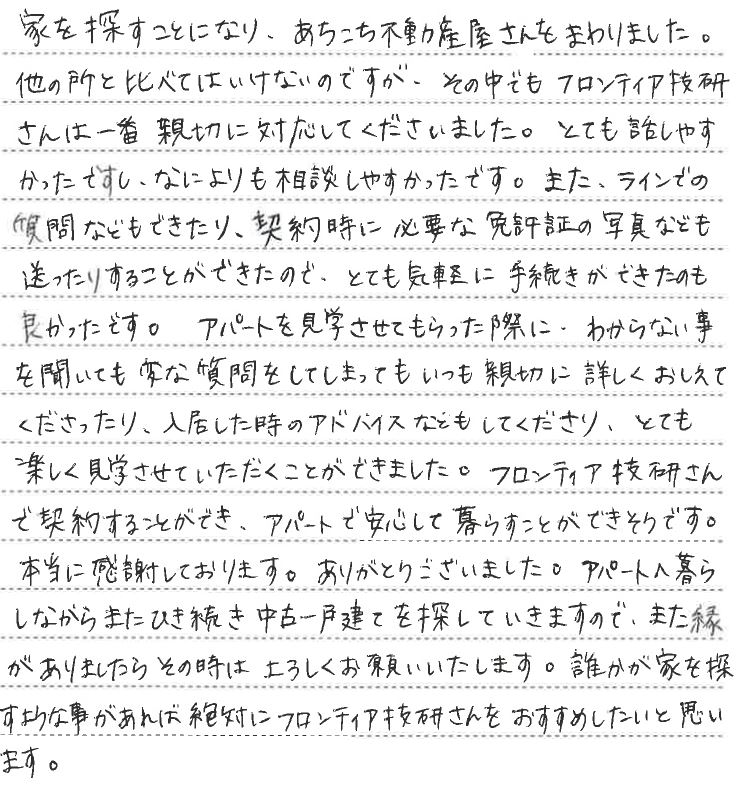 家を探すことになり、あちこち不動産屋さんをまわりました。
他の所と比べてはいけないのですが、その中でもフロンティア技研
さんは一番親切に対応してくださいました。とても話しやす
かったですし、なによりも相談しやすかったです。また、ラインでの
質問などもできたり、契約時に必要な免許証の写真なども
送ったりすることができたので、とても気軽に手続きができたのも
良かったです。アパートを見学させてもらった際に、わからない事
を聞いても変な質問をしてしまってもいつも親切に詳しくおしえて
くださったり、入居した時のアドバイスなどもしてくださり、とても
楽しく見学させていただくことができました。フロンティア技研さん
で契約することができ、アパートで安心して暮らすことができそうです。
本当に感謝しております。ありがとうございました。アパートへ暮ら
しながらまたひき続き中古一戸建てを探していきますので、また縁
がありましたらその時はよろしくお願いいたします。誰かが家を探
すような事があれば絶対にフロンティア技研さんをおすすめしたいと思い
ます。